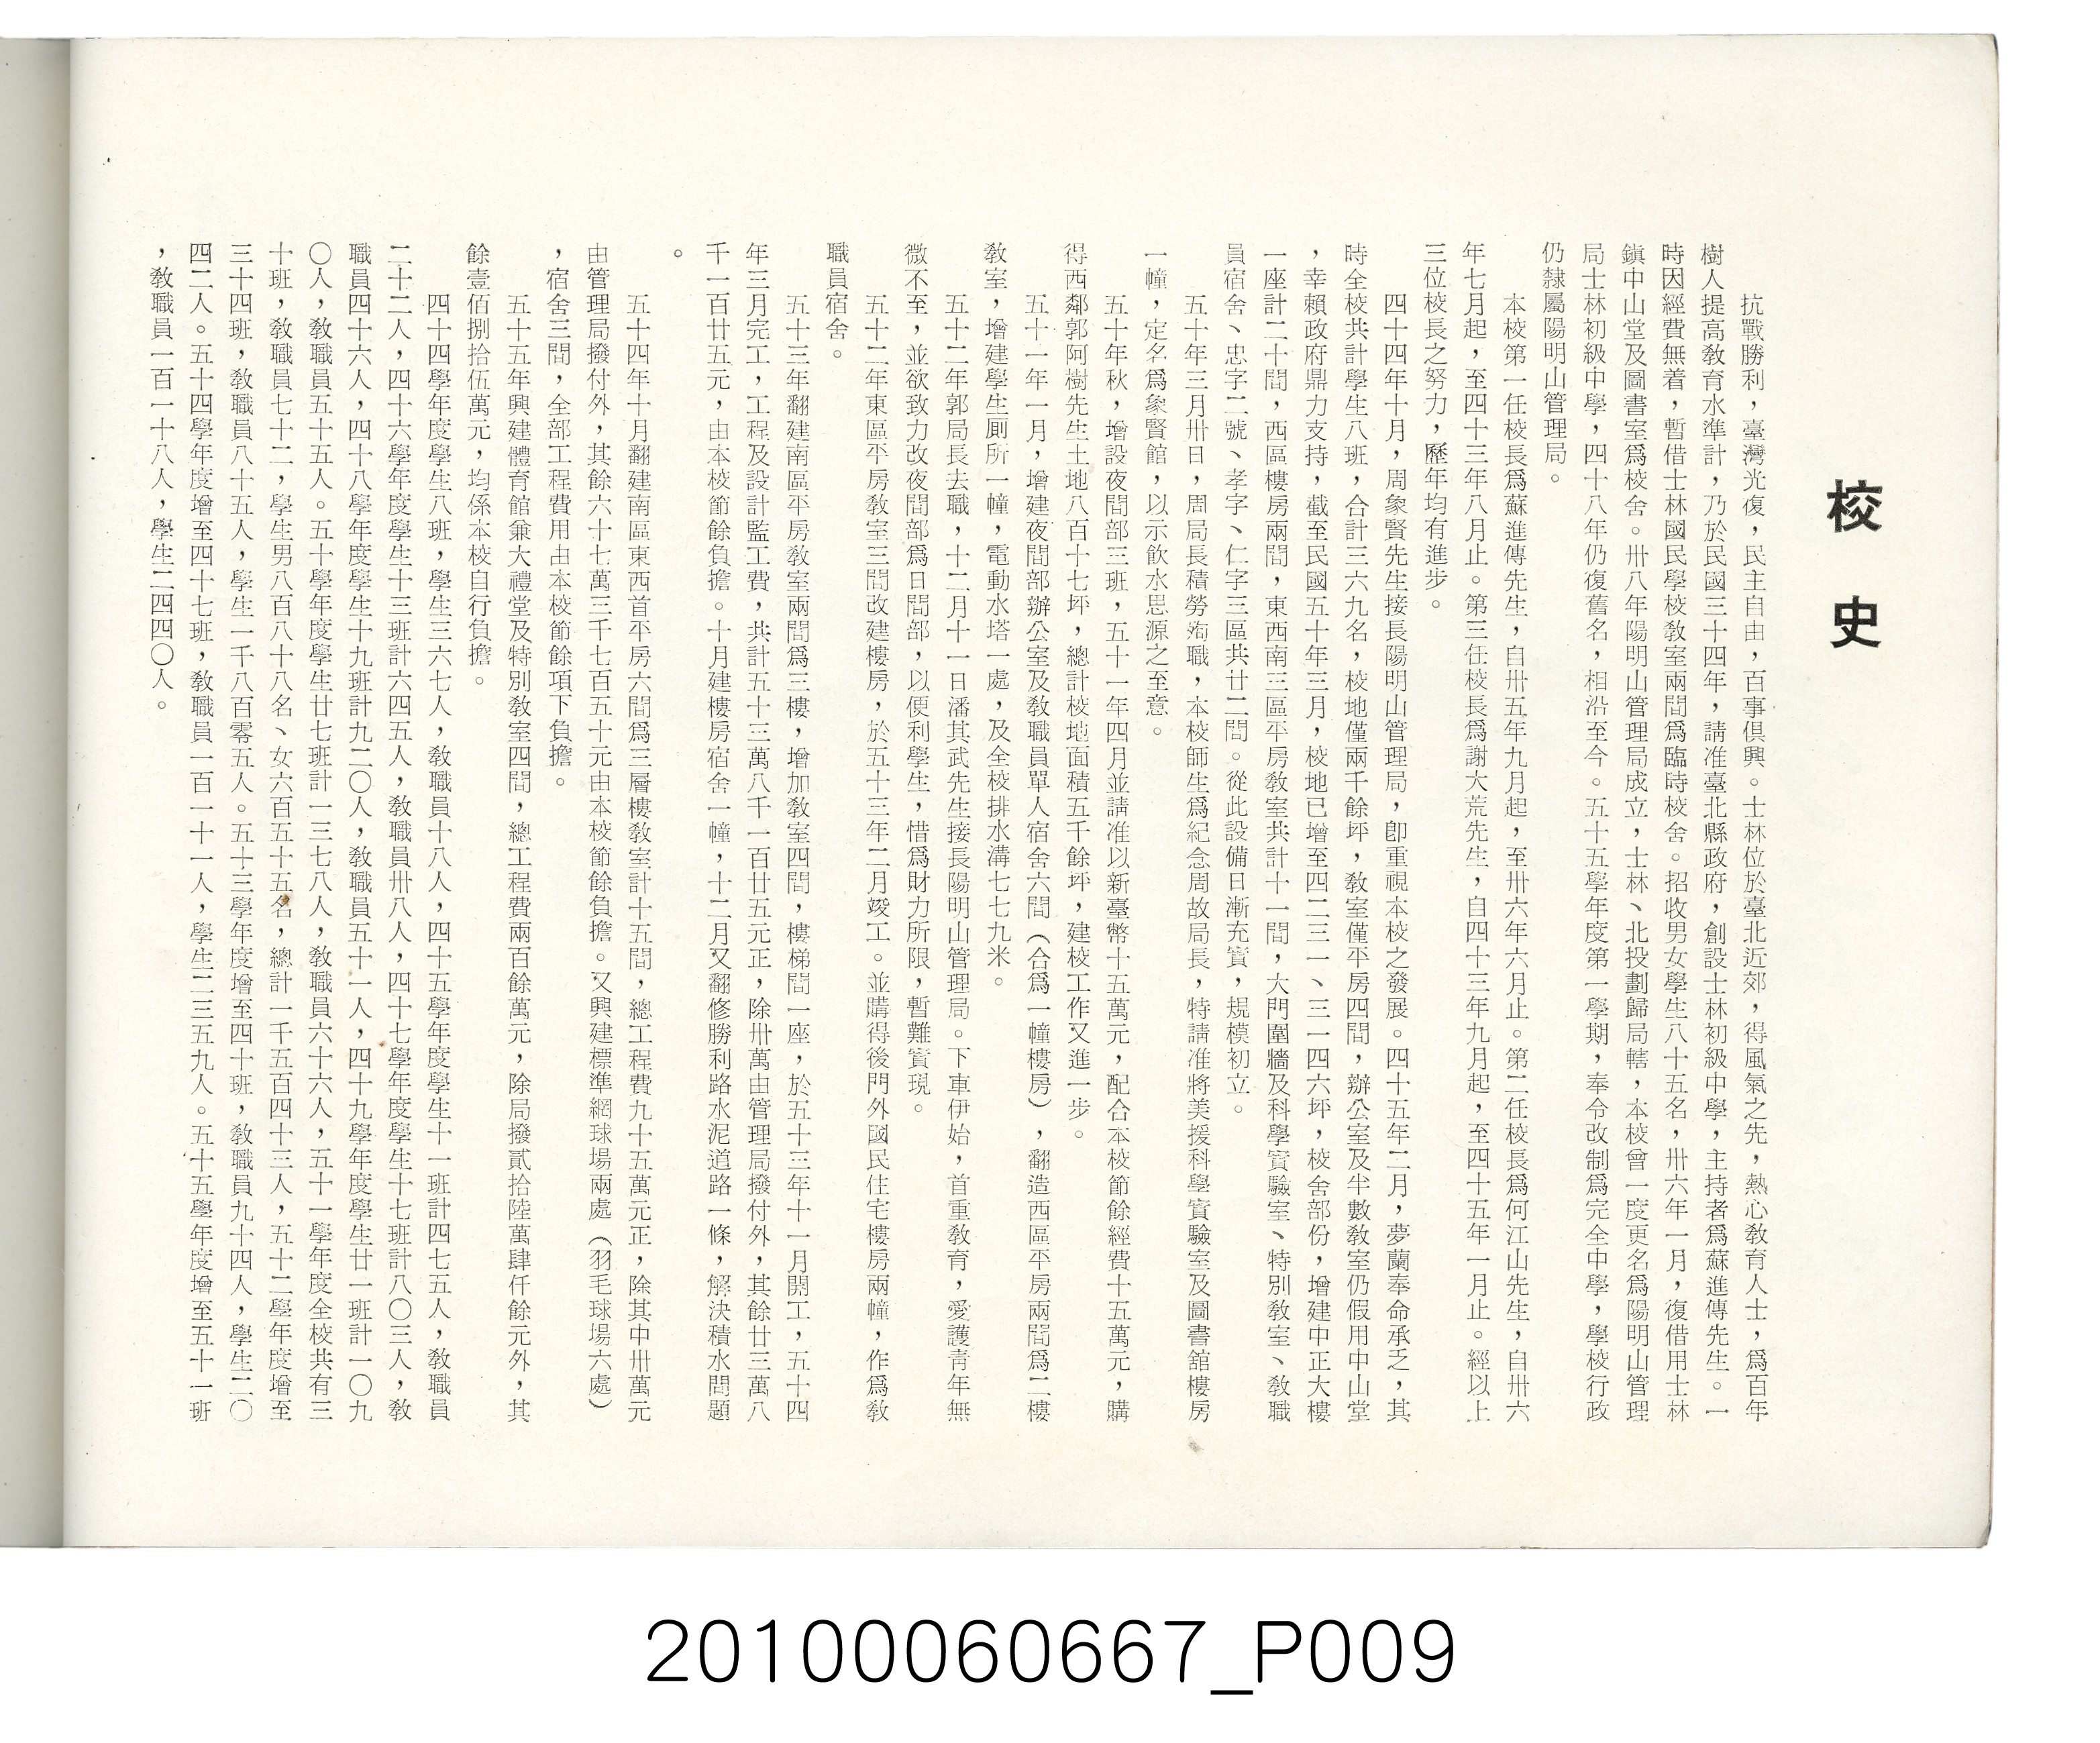 校史
抗戰勝利，臺灣光復，民主自由，百事俱興。士林位於臺北近郊，得風氣之先，熱心教育人士，爲百年
樹人提高教育水準計，乃於民國三十四年，請准臺北縣政府，創設士林初級中學，主持者爲蘇進傳先生。一
時因經費無着，暫借士林國民學校教室兩間爲臨時校舍。招收男女學生八十五名，卅六年一月，復借用士林
鎮中山堂及圖書室爲校舍。卅八年陽明山管理局成立，士林、北投劃歸局轄，本校曾一度更名爲陽明山管理
局士林初級中學，四十八年仍復舊名，相沿至今。五十五學年度第一學期，奉令改制爲完全中學，學校行政
仍隸屬陽明山管理局。
本校第一任校長爲蘇進傳先生，自卅五年九月起，至卅六年六月止。第二任校長爲何江山先生，自卅六
年七月起，至四十三年八月止。第三任校長爲謝大荒先生，自四十三年九月起，至四十五年一月止。經以上
三位校長之努力，歷年均有進步。
四十四年十月，周象賢先生接長陽明山管理局，卽重視本校之發展。四十五年二月，夢蘭奉命承乏，其
時全校共計學生八班，合計三六九名，校地僅兩千餘坪，教室僅平房四間，辦公室及半數教室仍假用中山堂
，幸賴政府鼎力支持，截至民國五十年三月，校地已增至四二三一、三一四六坪，校舍部份，增建中正大樓
一座計二十間，西區樓房兩間，東西南三區平房教室共計十一間，大門圍牆及科學實驗室、特別教室、教職
員宿舍、忠字二號、孝字、仁字三區共廿二間。從此設備日漸充實，規模初立。
五十年三月卅日，周局長積勞殉職，本校師生爲紀念周故局長，特請准將美援科學實驗室及圖書舘樓房
一幢，定名爲象賢館，以示飲水思源之至意。
五十年秋，增設夜間部三班，五十一年四月並請准以新臺幣十五萬元，配合本校節餘經費十五萬元，購
得西鄰郭阿樹先生土地八百十七坪，總計校地面積五千餘坪，建校工作又進一步。
五十一年一月，增建夜間部辦公室及教職員單人宿舍六間（合爲一幢樓房），翻造西區平房兩間爲二樓
教室，增建學生厠所一幢，電動水塔一處，及全校排水溝七七九米。
五十二年郭局長去職，十二月十一日潘其武先生接長陽明山管理局。下車伊始，首重教育，愛護青年無
微不至，並欲致力改夜間部爲日間部，以便利學生，惜爲財力所限，暫難實現。
五十二年東區平房教室三間改建樓房，於五十三年二月竣工。並購得後門外國民住宅樓房兩幢，作爲教
職員宿舍。
五十三年翻建南區平房教室兩間爲三樓，增加教室四間，樓梯間一座，於五十三年十一月開工，五十四
年三月完工，工程及設計監工費，共計五十三萬八千一百廿五元正，除卅萬由管理局撥付外，其餘廿三萬八
千一百廿五元，由本校節餘負擔。十月建樓房宿舍一幢，十二月又翻修勝利路水泥道路一條，解決積水問題
。
五十四年十月翻建南區東西首平房六間爲三層樓教室計十五間，總工程費九十五萬元正，除其中卅萬元
由管理局撥付外，其餘六十七萬三千七百五十元由本校節餘負擔。又興建標準網球場兩處（羽毛球場六處）
，宿舍三間，全部工程費用由本校節餘項下負擔。
五十五年興建體育館兼大禮堂及特別教室四間，總工程費兩百餘萬元，除局撥貳拾陸萬肆仟餘元外，其
餘壹佰捌拾伍萬元，均係本校自行負擔。
四十四學年度學生八班，學生三六七人，教職員十八人，四十五學年度學生十一班計四七五人，教職員
二十二人，四十六學年度學生十三班計六四五人，教職員卅八人，四十七學年度學生十七班計八〇三人，教
職員四十六人，四十八學年度學生十九班計九二〇人，教職員五十一人，四十九學年度學生廿一班計一〇九
〇人，教職員五十五人。五十學年度學生廿七班計一三七八人，教職員六十六人，五十一學年度全校共有三
十班，教職員七十二，學生男八百八十八名、女六百五十五名，總計一千五百四十三人，五十二學年度增至
三十四班，教職員八十五人，學生一千八百零五人。五十三學年度增至四十班，教職員九十四人，學生二〇
四二人。五十四學年度增至四十七班，教職員一百一十一人，學生二三五九人。五十五學年度增至五十一班
，教職員一百一十八人，學生二四四〇人。
20100060667_P009